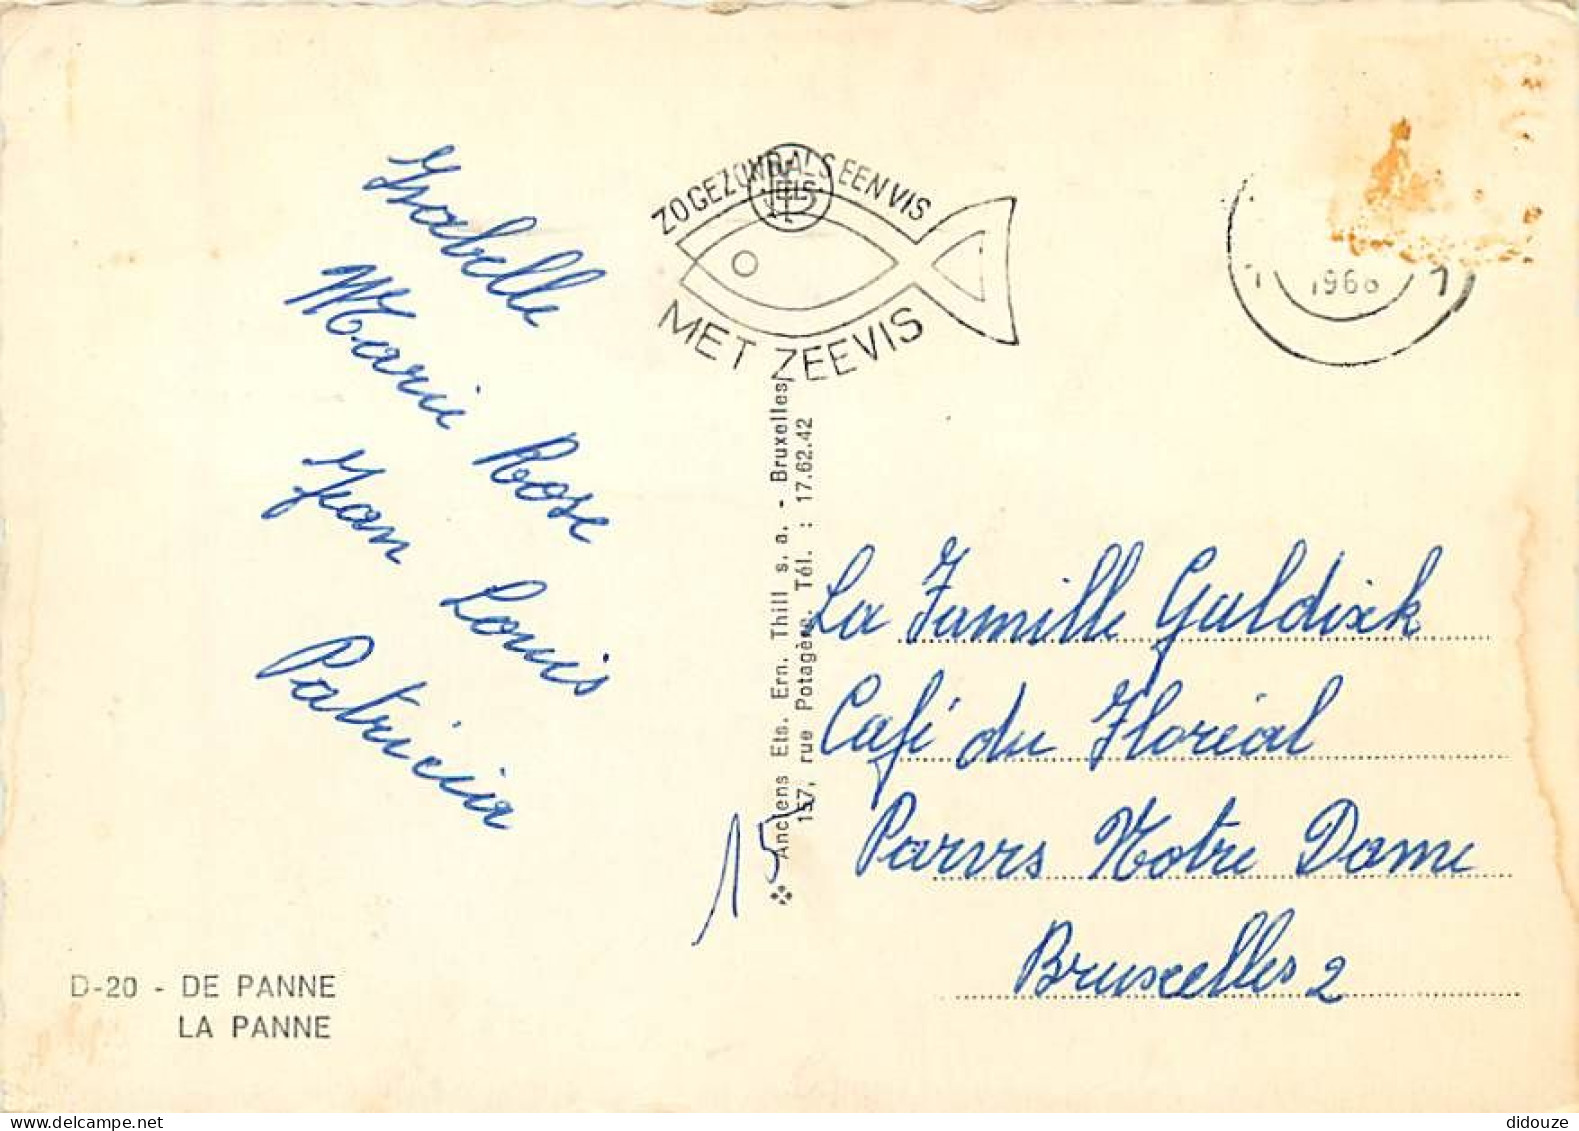 Isabelle
Marie Rose
Jean Louis
Patricia
ZO GEZOND ALS EEN VIS
MET ZEEVIS
1968
1
Anciens Ets. Ern. Thill s.a. - Bruxelles
157, rue Potagère. Tél. : 17.62.42
15
La Famille Guldixk
Café du Floréal
Parvis Notre Dame
Bruxelles 2
D-20 - DE PANNE
LA PANNE
didouze